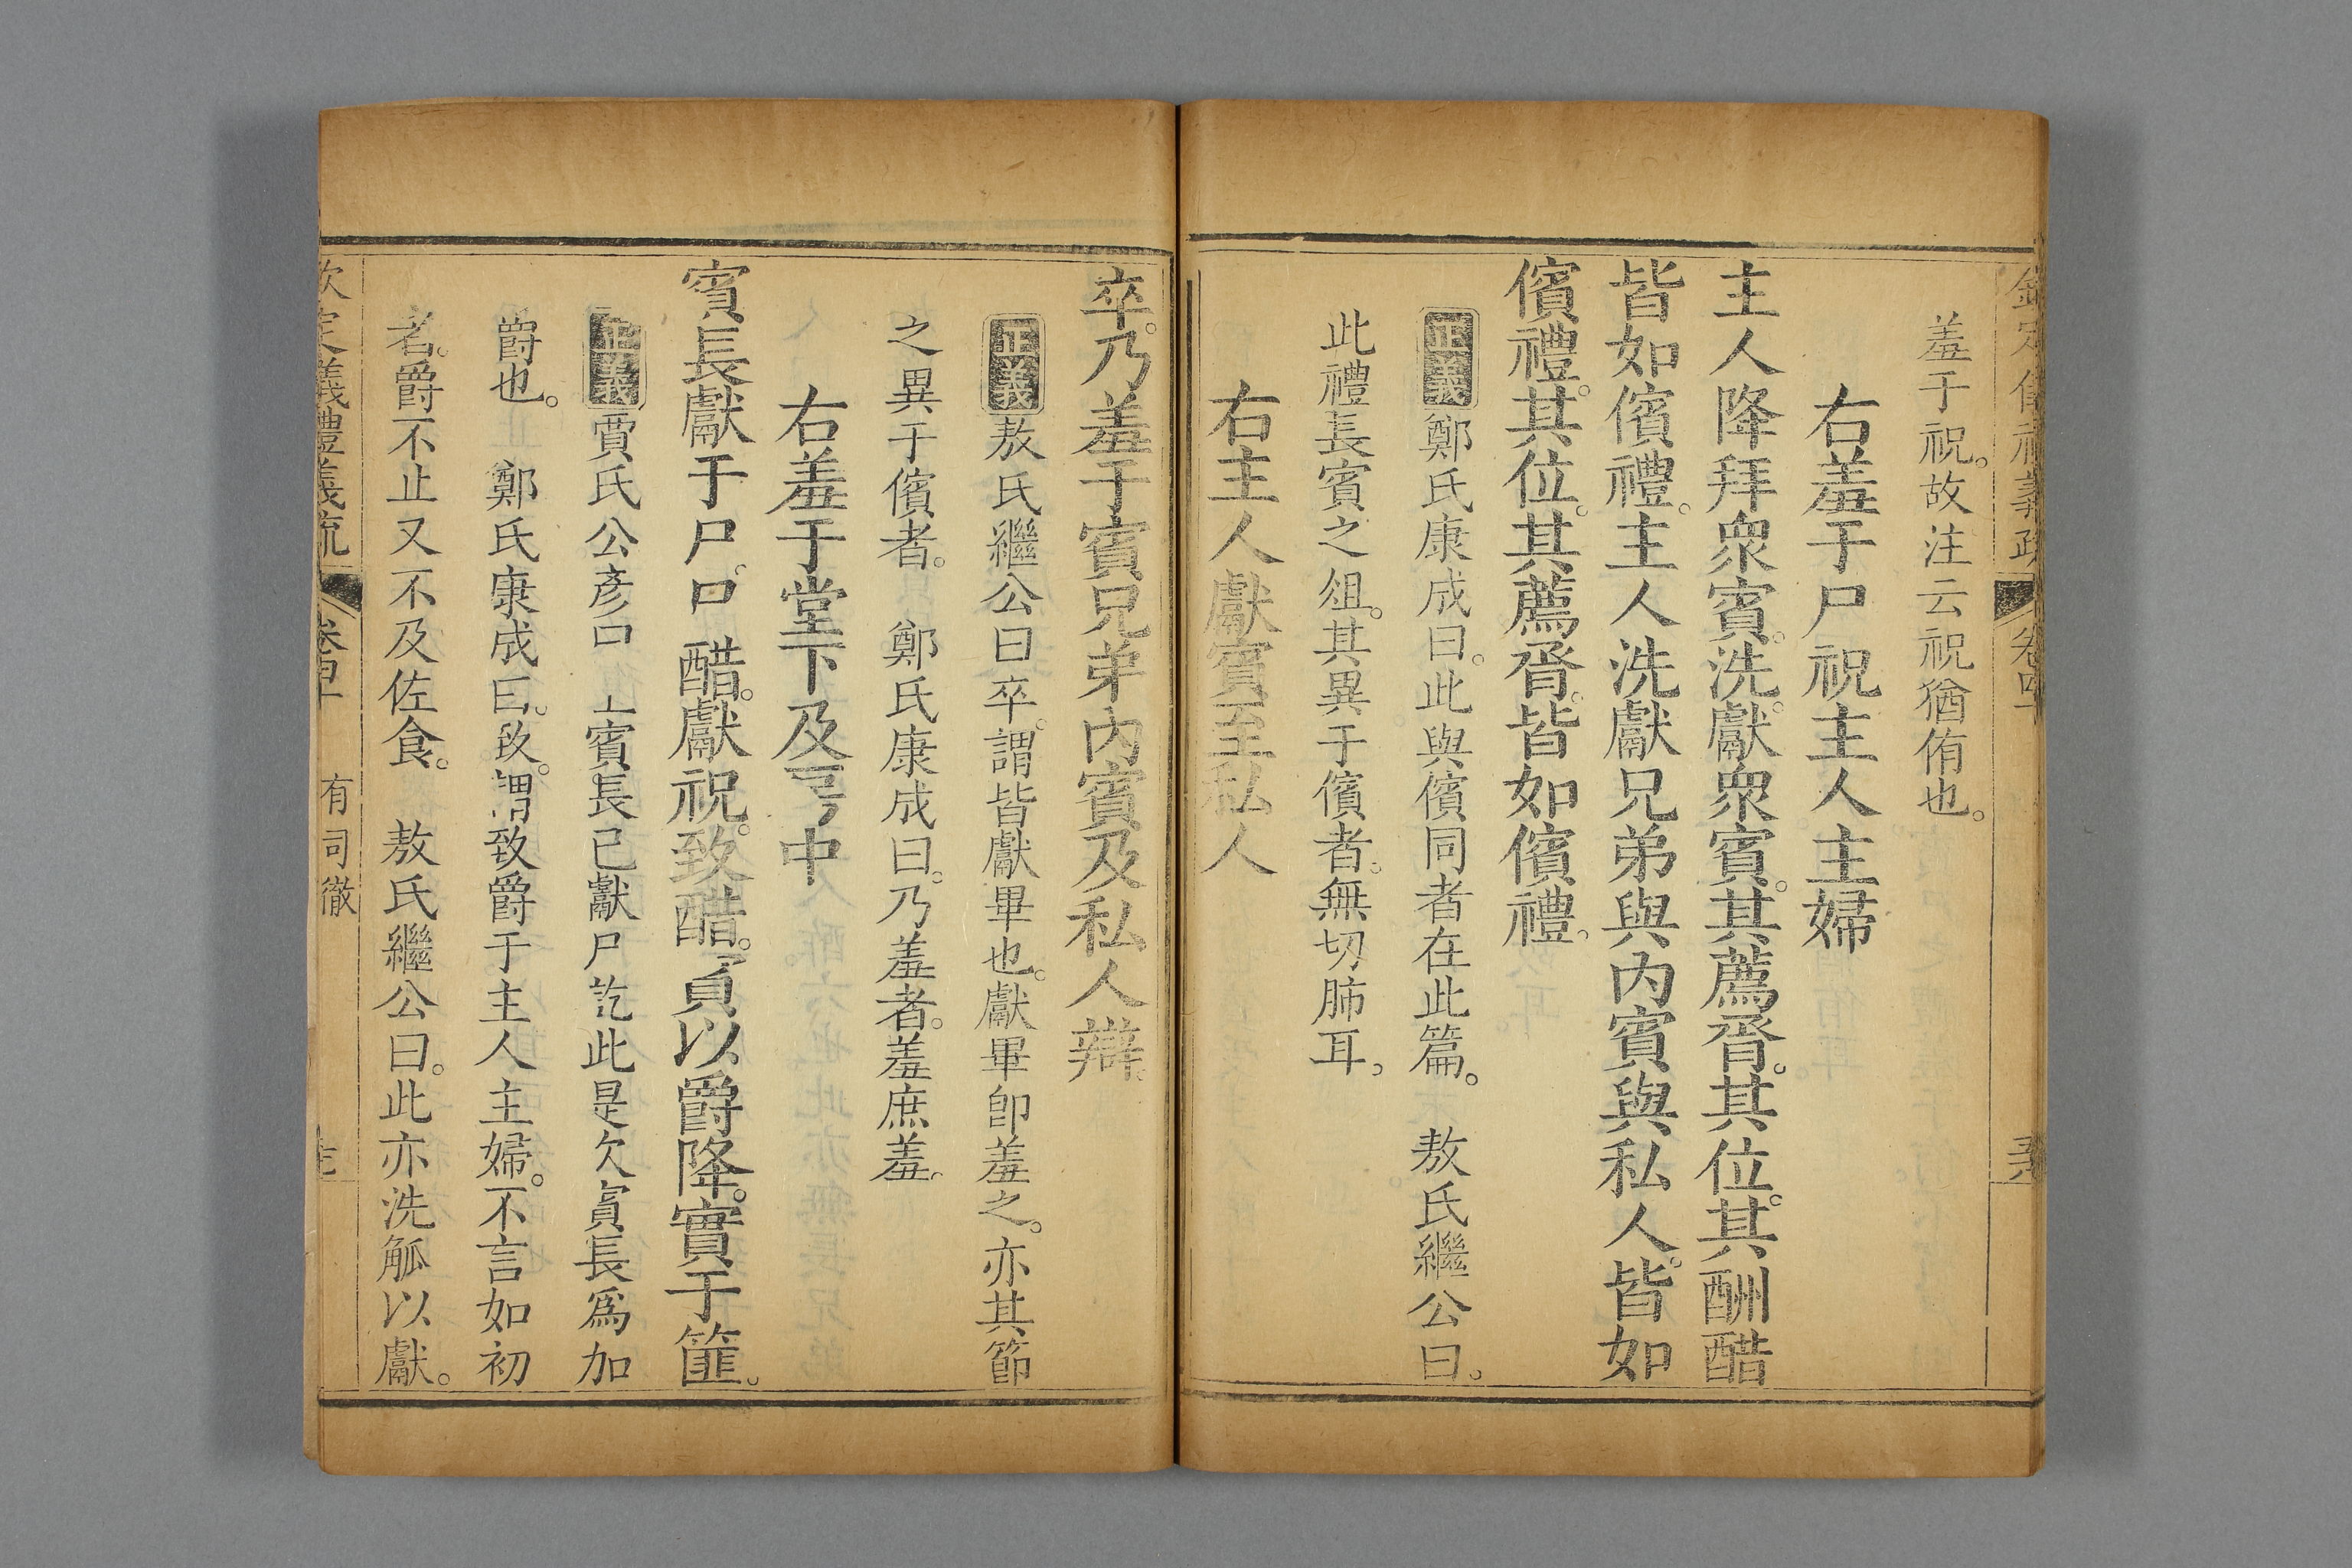 羞于祝。故注云祝猶侑也。
右羞于尸祝主人主婦
主人降拜衆賓。洗獻衆賓。其薦脀。其位。其酬醋
皆如儐禮。主人洗獻兄弟與內賓與私人。皆如
儐禮。其位。其薦脀。皆如儐禮。
正義鄭氏康成曰。此與儐同者在此篇。 敖氏繼公曰。
此禮長賓之俎。其異于儐者。無切肺耳。
右主人獻賓至私人
卒。乃羞于賓兄弟內賓及私人辯。
正義敖氏繼公曰卒。謂皆獻畢也。獻畢卽羞之。亦其節
之異于儐者。 鄭氏康成曰。乃羞者。羞庶羞。
右羞于堂下及 中
賓長獻于尸。 醋。獻祝。致。醋。賓以爵降。實于篚。
正義賈氏公彥 上賓長已獻尸訖此是次賓長爲加
爵也。 鄭氏康成曰。致。謂致爵于主人主婦。不言如初
者。爵不止又不及佐食。 敖氏繼公曰。此亦洗觚以獻。
欽定義禮義疏 卷四十 有司徹